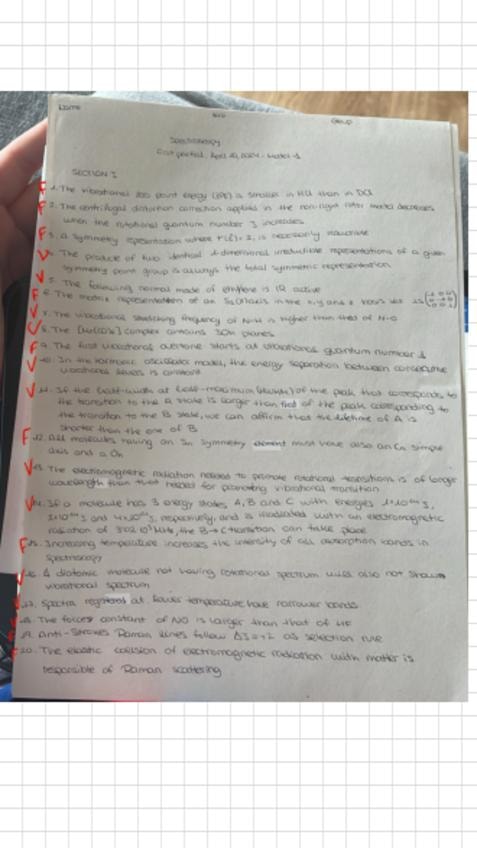 Name
Group
Spectroscopy
First partial, April 20, 2024 - Model 1
SECTION I
F 1. The vibrational zero point energy (ZPE) is smaller in HCl than in DCl
F 2. The centrifugal distortion correction applied in the non-rigid rotor model decreases
when the rotational quantum number J increases
F 3. A symmetry representation where is necessarily reducible
V 4. The product of two identical 1-dimensional irreducible representations of a given
symmetry point group is always the total symmetric representation
V 5. The following normal mode of ethylene is IR active
F 6. The matrix representation of an axis in the x, y and z basis set is
V 7. The vibrational stretching frequency of N-H is higher than that of N-D
V 8. The complex contains planes
F 9. The first vibrational overtone starts at vibrational quantum number 1
V 10. In the harmonic oscillator model, the energy separation between consecutive
vibrational levels is constant
V 11. If the half-width at half-maximum of the peak that corresponds to
the transition to the A state is larger than that of the peak corresponding to
the transition to the B state, we can affirm that the lifetime of A is
shorter than the one of B
F 12. All molecules having an Sn symmetry element must have also an Cn simple
axis and a σh
V 13. The electromagnetic radiation needed to promote rotational transitions is of longer
wavelength than that needed for promoting vibrational transition
V 14. If a molecule has 3 energy states, A, B and C with energies
and respectively, and is irradiated with an electromagnetic
radiation of the B→C transition can take place
F 15. Increasing temperature increases the intensity of all absorption bands in
spectroscopy
V 16. A diatomic molecule not having rotational spectrum will also not show
vibrational spectrum
V 17. Spectra registered at lower temperature have narrower bands
18. The force constant of NO is larger than that of HF
19. Anti-Stokes Raman lines follow as selection rule
F 20. The elastic collision of electromagnetic radiation with matter is
responsible of Raman scattering